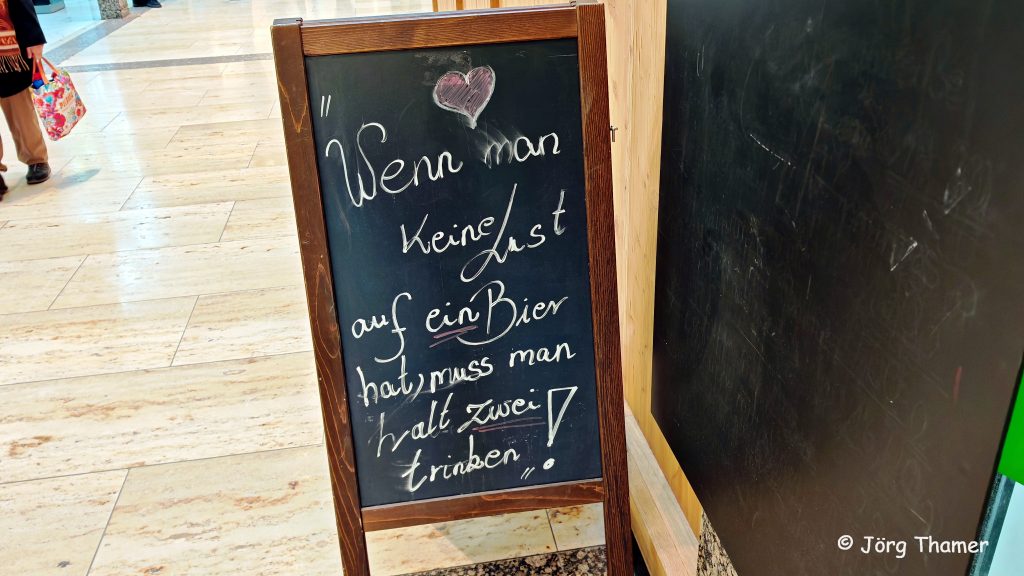 "Wenn man
keine Lust
auf ein Bier
hat, muss man
halt zwei
trinken"!
© Jörg Thamer